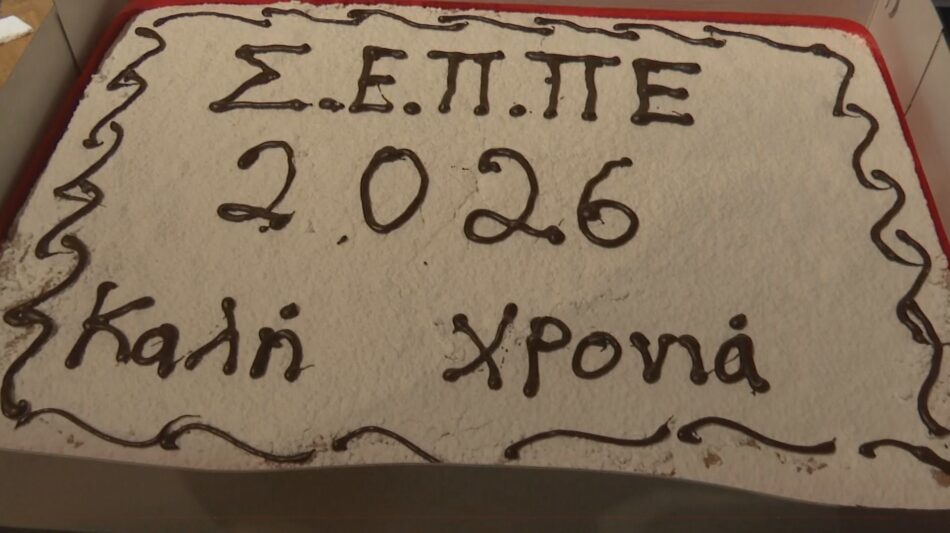 Σ.Ε.Π.ΠΕ
2026
Καλή Χρονιά